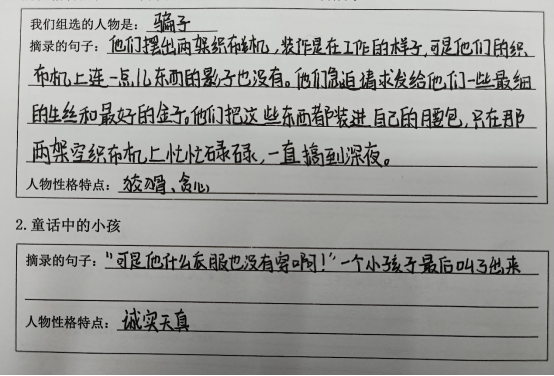 我们组选的人物是：骗子
摘录的句子：他们摆出两架织布机，装作是在工作的样子，可是他们的织
布机上连一点儿东西的影子也没有。他们急迫请求发给他们一些最细
的生丝和最好的金子。他们把这些东西都装进自己的腰包，只在那
两架空织布机上忙忙碌碌，一直搞到深夜。
人物性格特点：狡猾、贪心
2. 童话中的小孩
摘录的句子："可是他什么衣服也没有穿啊！"一个小孩子最后叫了出来
人物性格特点：诚实天真